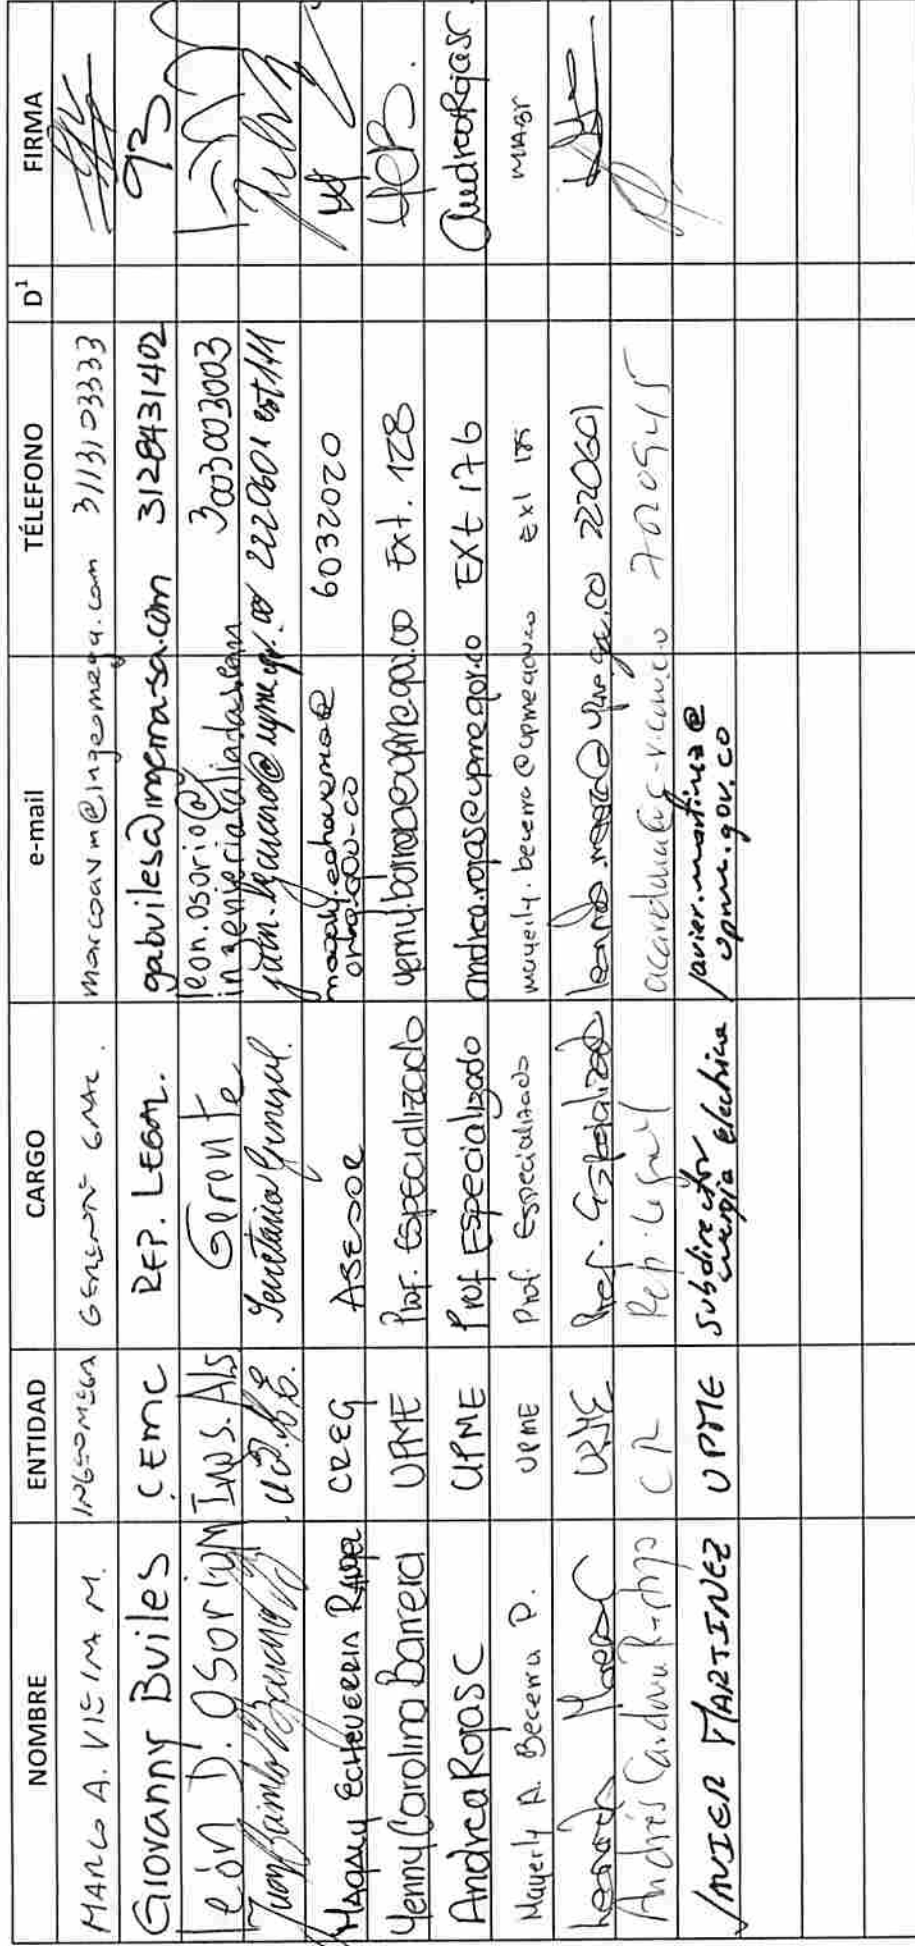 NOMBRE ENTIDAD CARGO e-mail TÉLEFONO D¹ FIRMA
MARCO A. VIEIRA M. INGEOMEGA GERENTE GRAL. marcoavm@ingeomega.com 3113103333
Giovanny Builes CEMC REP. LEGAL. gabuiles@ingemasa.com 3128431402 93
león D. Osorio M Ings. Als Gerente leon.osorio@
ingenierialiadas.com 3003003003
Secretaria General. 2220601 ext 141
Magaly Echeverria Rangel CREG ASESOR 6032020
Yenny Carolina Barrera UPME Prof. Especializado yenny.barrera@upme.gov.co Ext. 128 YCB.
Andrea Rojas C UPME Prof Especializado andrea.rojas@upme.gov.co EXt 176 AndreaRojasC
Mayerly A. Becerra P. UPME Prof. Especializado mayerly.becerra@upme.gov.co Ext 175
Leonardo UPME Prof. Especializado 222060
Andrés Cardona Restrepo CR Rep. Legal
JAVIER MARTINEZ UPME Subdirector
energía eléctrica javier.martinez@
upme.gov.co